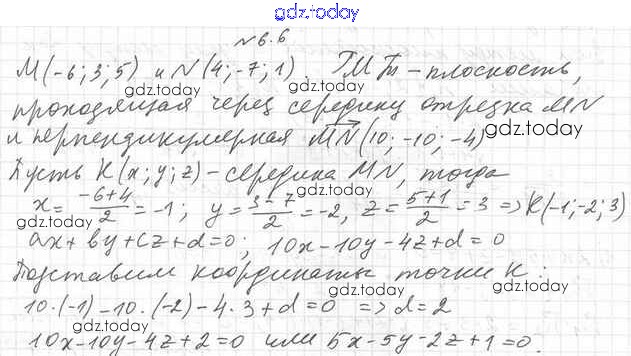 gdz.today
№6.6
M(-6;3;5) и N(4;-7;1). ГМТ - плоскость,
проходящая через середину отрезка MN
и перпендикулярная MN(10; -10; -4)
Пусть K(x;y;z) - середина MN, тогда
x = (-6+4)/2 = -1; y = (3-7)/2 = -2, z = (5+1)/2 = 3 => K(-1;-2;3)
ax+by+cz+d=0; 10x-10y-4z+d=0
Подставим координаты точки K:
10·(-1)-10·(-2)-4·3+d=0 => d=2
10x-10y-4z+2=0 или 5x-5y-2z+1=0.
gdz.today
gdz.today
gdz.today
gdz.today
gdz.today
gdz.today
gdz.today
gdz.today
gdz.today